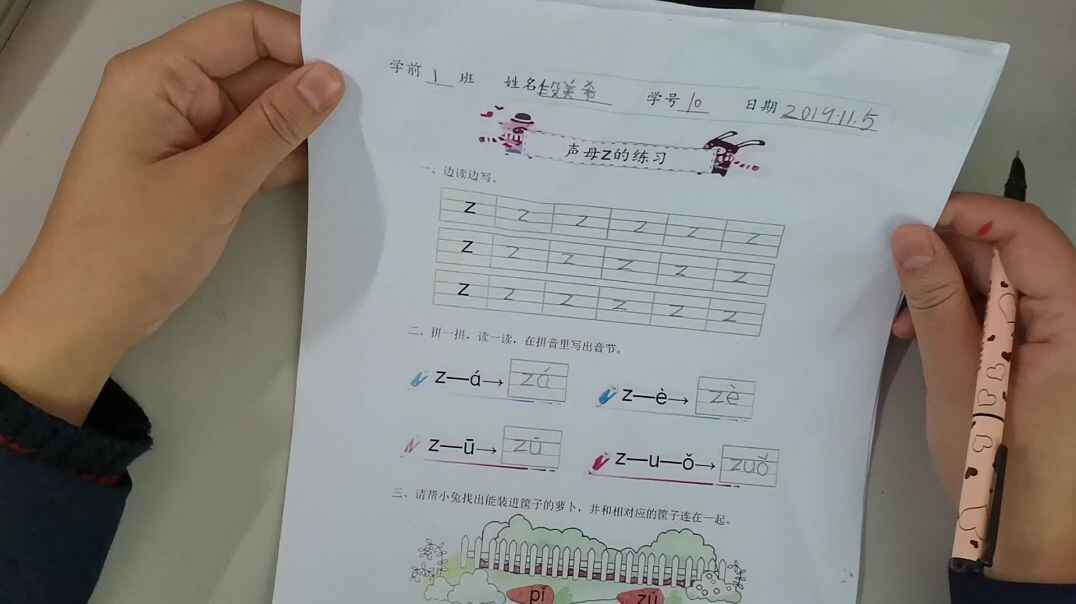 学前 1 班 姓名段美希 学号 10 日期 2019.11.5
声母z的练习
一、边读边写。
z z z z z z
z z z z z z
z z z z z z
二、拼一拼，读一读，在拼音里写出音节。
z—á→ zá z—è→ zè
z—ū→ zū z—u—ǒ→ zuǒ
三、请帮小兔找出能装进筐子的萝卜，并和相对应的筐子连在一起。
pí zú